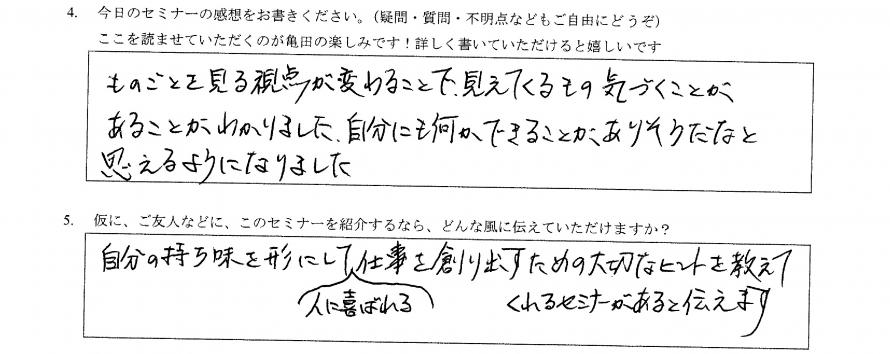 4. 今日のセミナーの感想をお書きください。（疑問・質問・不明点などもご自由にどうぞ）
ここを読ませていただくのが亀田の楽しみです！詳しく書いていただけると嬉しいです
ものごとを見る視点が変わることで、見えてくるもの気づくことが
あることがわかりました、自分にも何かできることがありそうだなと
思えるようになりました
5. 仮に、ご友人などに、このセミナーを紹介するなら、どんな風に伝えていただけますか？
自分の持ち味を形にして仕事を創り出すための大切なヒントを教えて
人に喜ばれる
くれるセミナーがあると伝えます